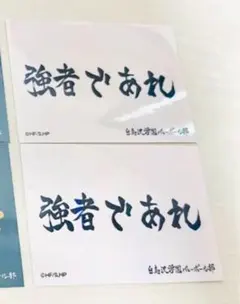 強者であれ
©HF/S,HP
白鳥沢学園バレーボール部
強者であれ
©HF/S,HP
白鳥沢学園バレーボール部
ル部